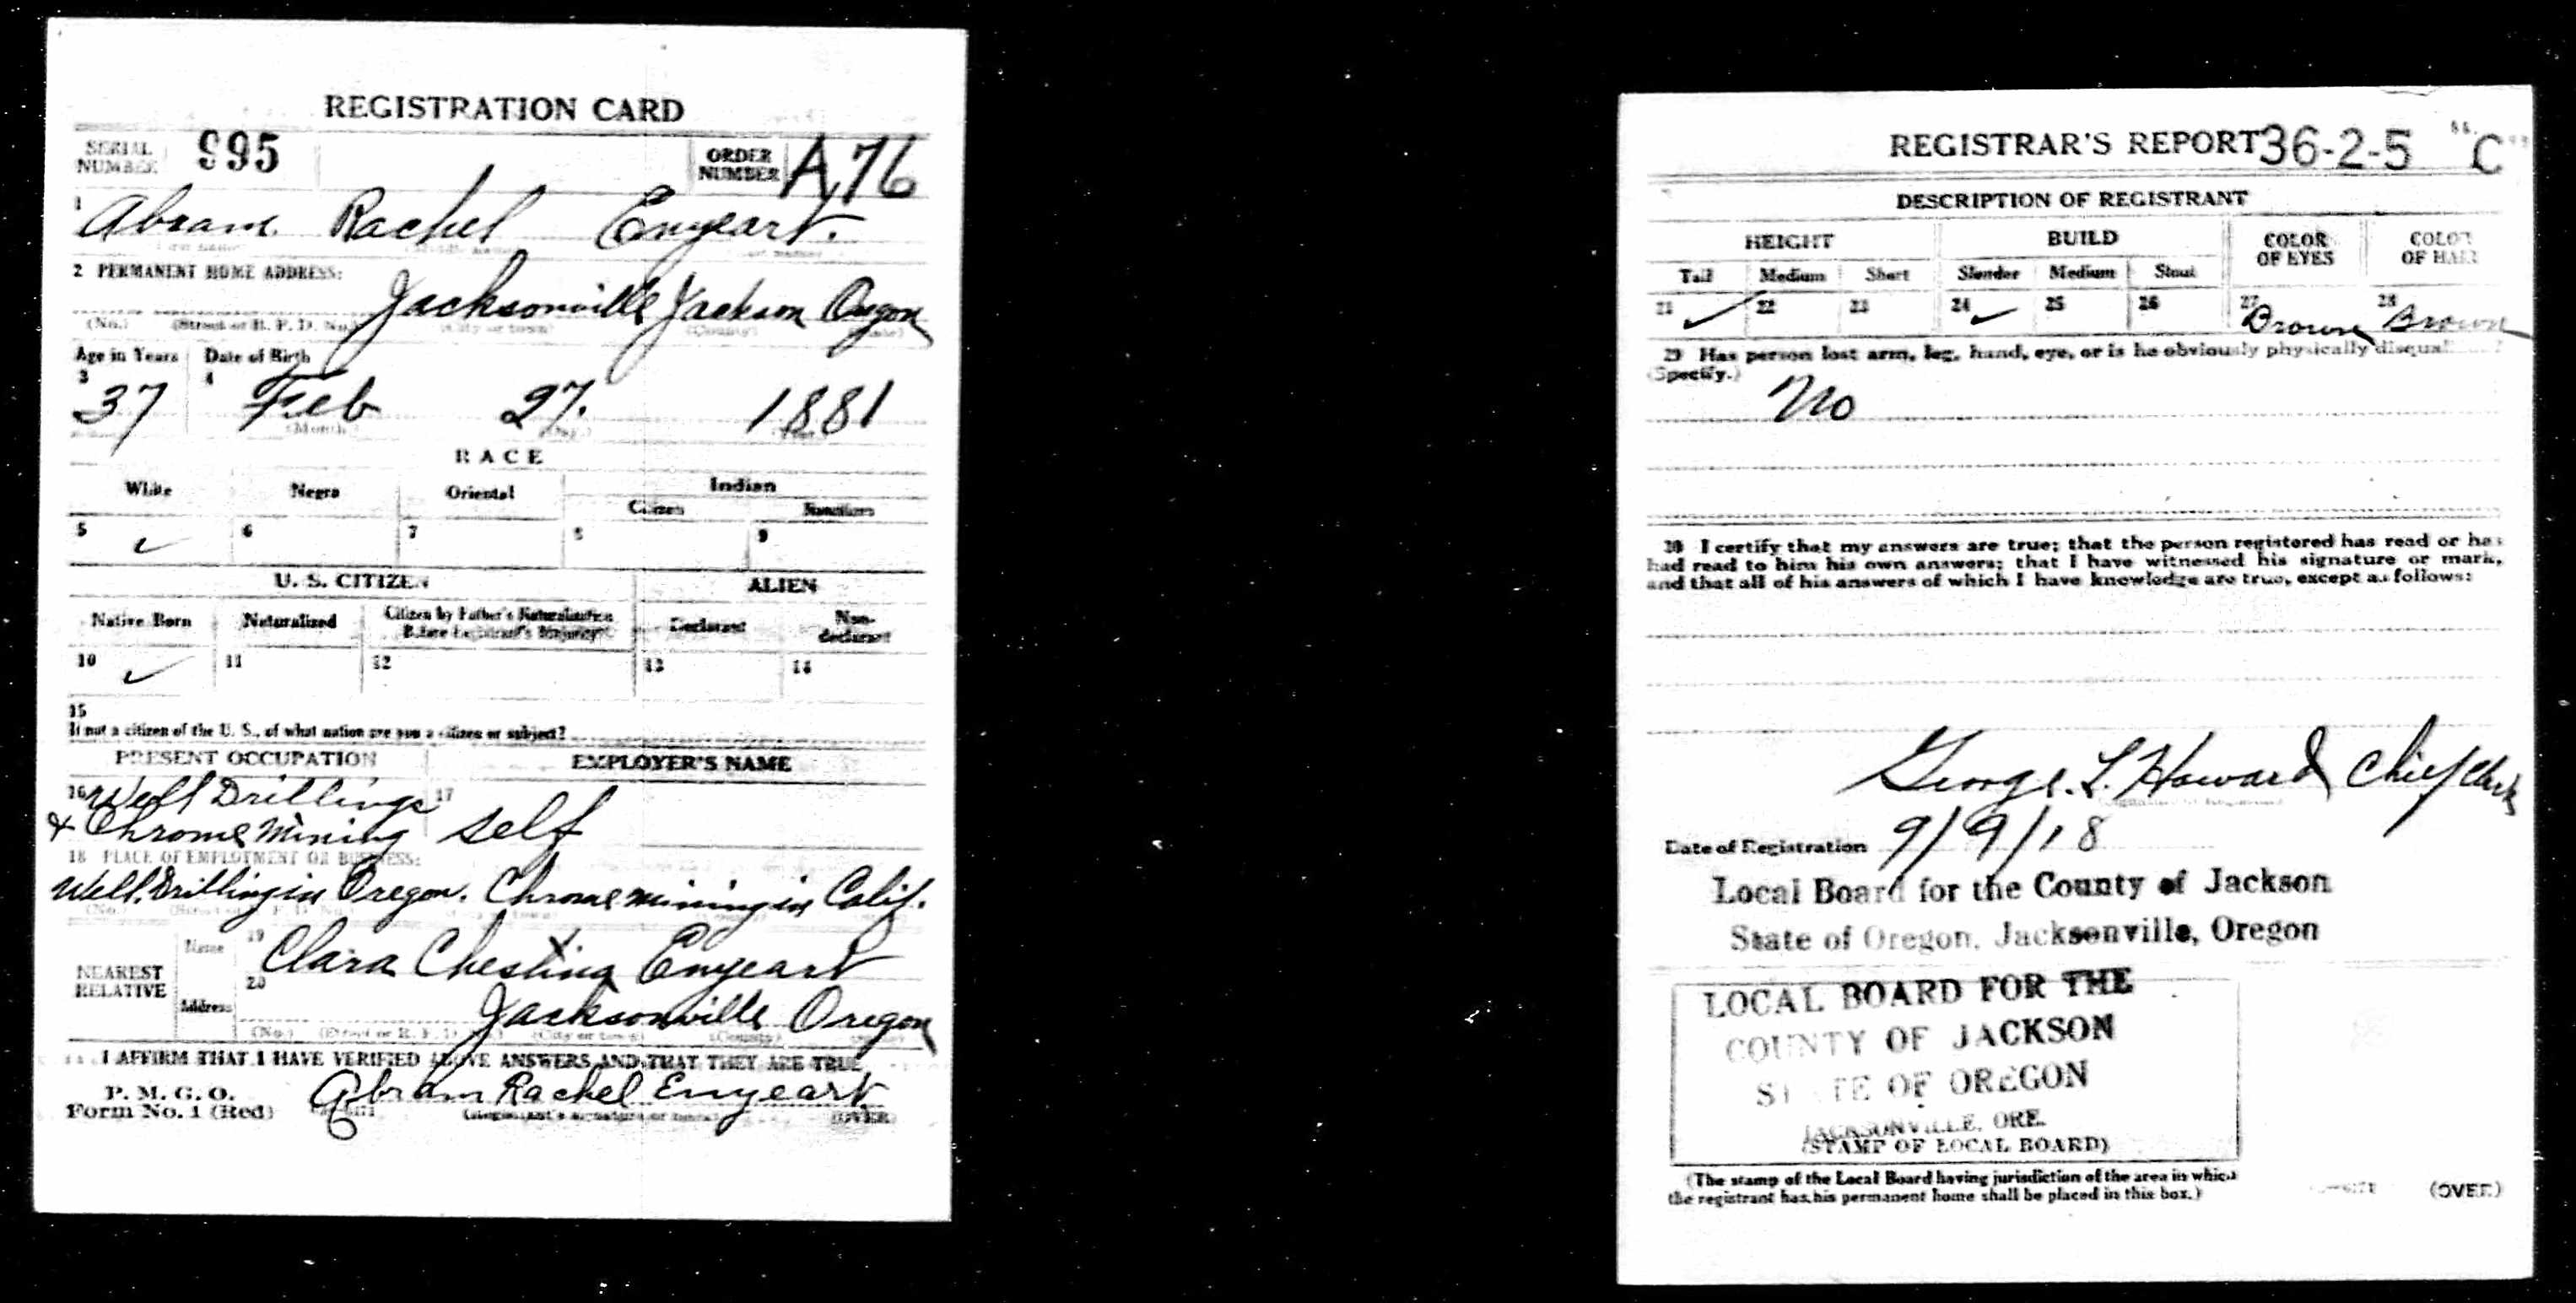 REGISTRATION CARD
SERIAL NUMBER 995 ORDER NUMBER A76
1 Abram Rachel Enyeart.
2 PERMANENT HOME ADDRESS:
Jacksonville Jackson Oregon
(No.) (Street or R. F. D. No.) (City or town) (County) (State)
Age in Years Date of Birth
3 37 4 Feb 27. 1881
(Month) (Day) (Year)
RACE
White Negro Oriental Indian
Citizen Noncitizen
5 ✓ 6 7 8 9
U. S. CITIZEN ALIEN
Native Born Naturalized Citizen by Father's Naturalization Before Registrant's Majority Declarant Non-declarant
10 ✓ 11 12 13 14
15
If not a citizen of the U. S., of what nation are you a citizen or subject?
PRESENT OCCUPATION EMPLOYER'S NAME
16 Well Drilling 17
& Chrome Mining self
18 PLACE OF EMPLOYMENT OR BUSINESS:
Well Drilling in Oregon. Chrome mining in Calif.
NEAREST RELATIVE
Name 19 Clara Chestina Enyeart
Address 20 Jacksonville Oregon
(No.) (Street or R. F. D. No.) (City or town) (County)
I AFFIRM THAT I HAVE VERIFIED ABOVE ANSWERS AND THAT THEY ARE TRUE
P. M. G. O.
Form No. 1 (Red) Abram Rachel Enyeart
(Registrant's signature or mark) (OVER)
REGISTRAR'S REPORT 36-2-5 "C"
DESCRIPTION OF REGISTRANT
HEIGHT BUILD COLOR OF EYES COLOR OF HAIR
Tall Medium Short Slender Medium Stout
21 ✓ 22 23 24 ✓ 25 26 27 Brown 28 Brown
29 Has person lost arm, leg, hand, eye, or is he obviously physically disqualified?
(Specify.) No
30 I certify that my answers are true; that the person registered has read or has
had read to him his own answers; that I have witnessed his signature or mark,
and that all of his answers of which I have knowledge are true, except as follows:
George L. Howard Chief Clerk
Date of Registration 9/9/18
Local Board for the County of Jackson
State of Oregon, Jacksonville, Oregon
LOCAL BOARD FOR THE
COUNTY OF JACKSON
STATE OF OREGON
JACKSONVILLE, ORE.
(STAMP OF LOCAL BOARD)
(The stamp of the Local Board having jurisdiction of the area in which
the registrant has his permanent home shall be placed in this box.)
(OVER)